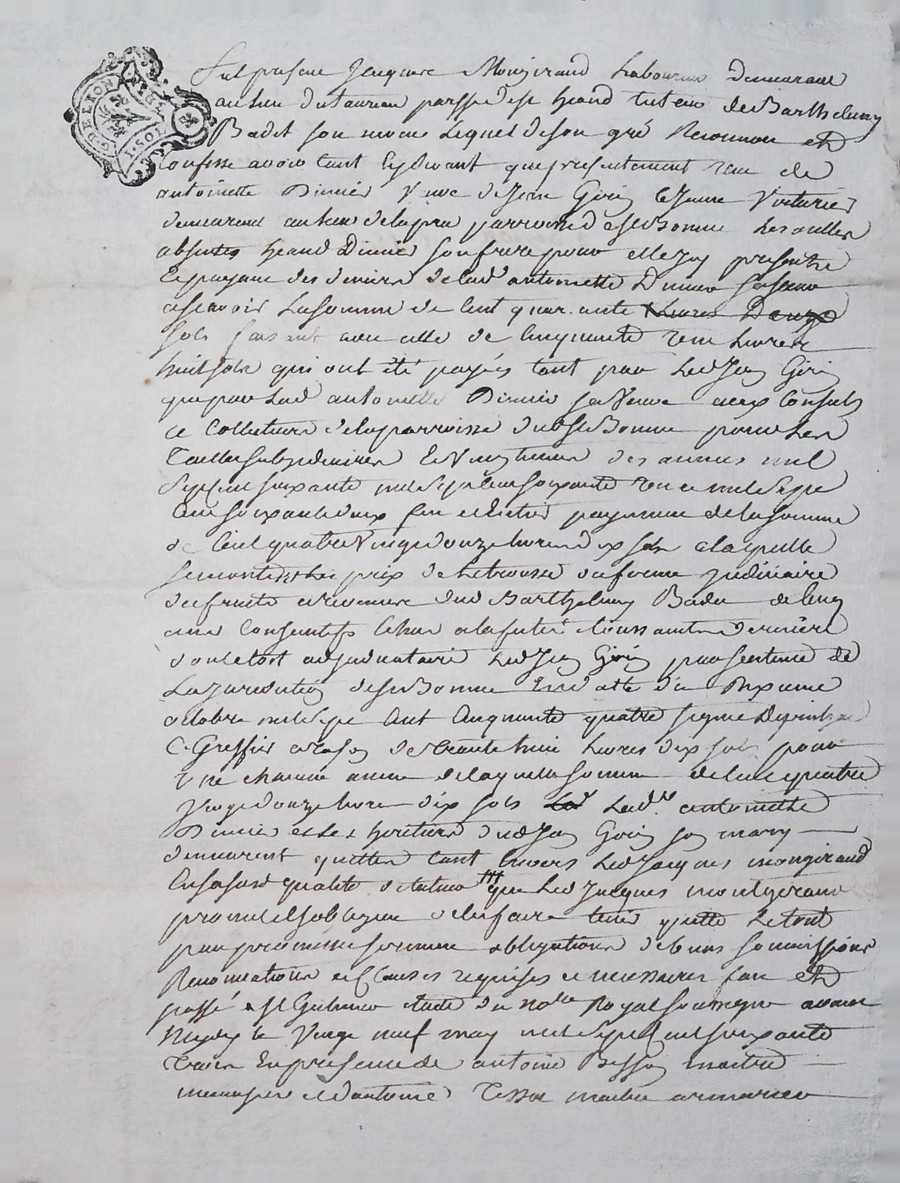 G. DE LYON
1. SOL
fut present Jacques Mongiraud Laboureur demeurant
au lieu du taureau parsse de st heand tuteur de Barthelemy
Badet son neveu Lequel de son gré Reconnoit et
confesse avoir tant cydevant que presentement reçu de
antoinette Dimier veuve de Jean Giry Le Jeune Voiturier
demeurant au lieu de lapra parroisse de st Bonne Les oulles
absente heand Dimier son frere pour elle icy present
Et payant des deniers de lad antoinette Dimier sa soeur
a scavoir La somme de cent quarante Livres Douze
sols faisant avec celle de cinquante une Livres
huit sols qui ont été payés tant par Led Jean Giry
que par Lad antoinette Dimier sa veuve aux Consuls
et Collecteurs de la parroisse dud st Bonne pour Les
Tailles subsidiaires Et Vingtiemes des années mil
sept cent soixante mil sept cent soixante un et mil sept
cent soixante deux fin et Entier payement de la somme
de Cent quatre Vingt douze livres dix sols a laquelle
se monte le prix de la trousse de ferme judiciaire
des fruits et revenus dud Barthelemy Badet de cinq
ans Consecutifs Echus a la feste toussaints derniere
dont etoit adjudicataire Led Jean Giry par sentence de
La Jurisdiction de st Bonne En datte du Dixieme
octobre mil sept cent cinquante quatre signé
C. Greffier a raison de trente huit Livres dix sols pour
une chacune année de laquelle somme de cent quatre
Vingt douze livres dix sols Lad Lad.e antoinette
Dimier et Les heritiers dud Jean Giry son mary
demeurent quittes tant Envers Led Jacques mongiraud
En sa qualité de tuteur que Led Jacques montgiraud
promet et s'oblige de les faire tenir quitte Le tout
par promesse serment obligations de biens soumissions
Renonciations et Clauses requises et necessaires fait et
passé a st Galmier etude du no.re Royal soussigné avant
midy le Vingt neuf may mil sept cent soixante
trois En presence de antoine Besson maitre
menusier et d antoine Tessot maitre armurier